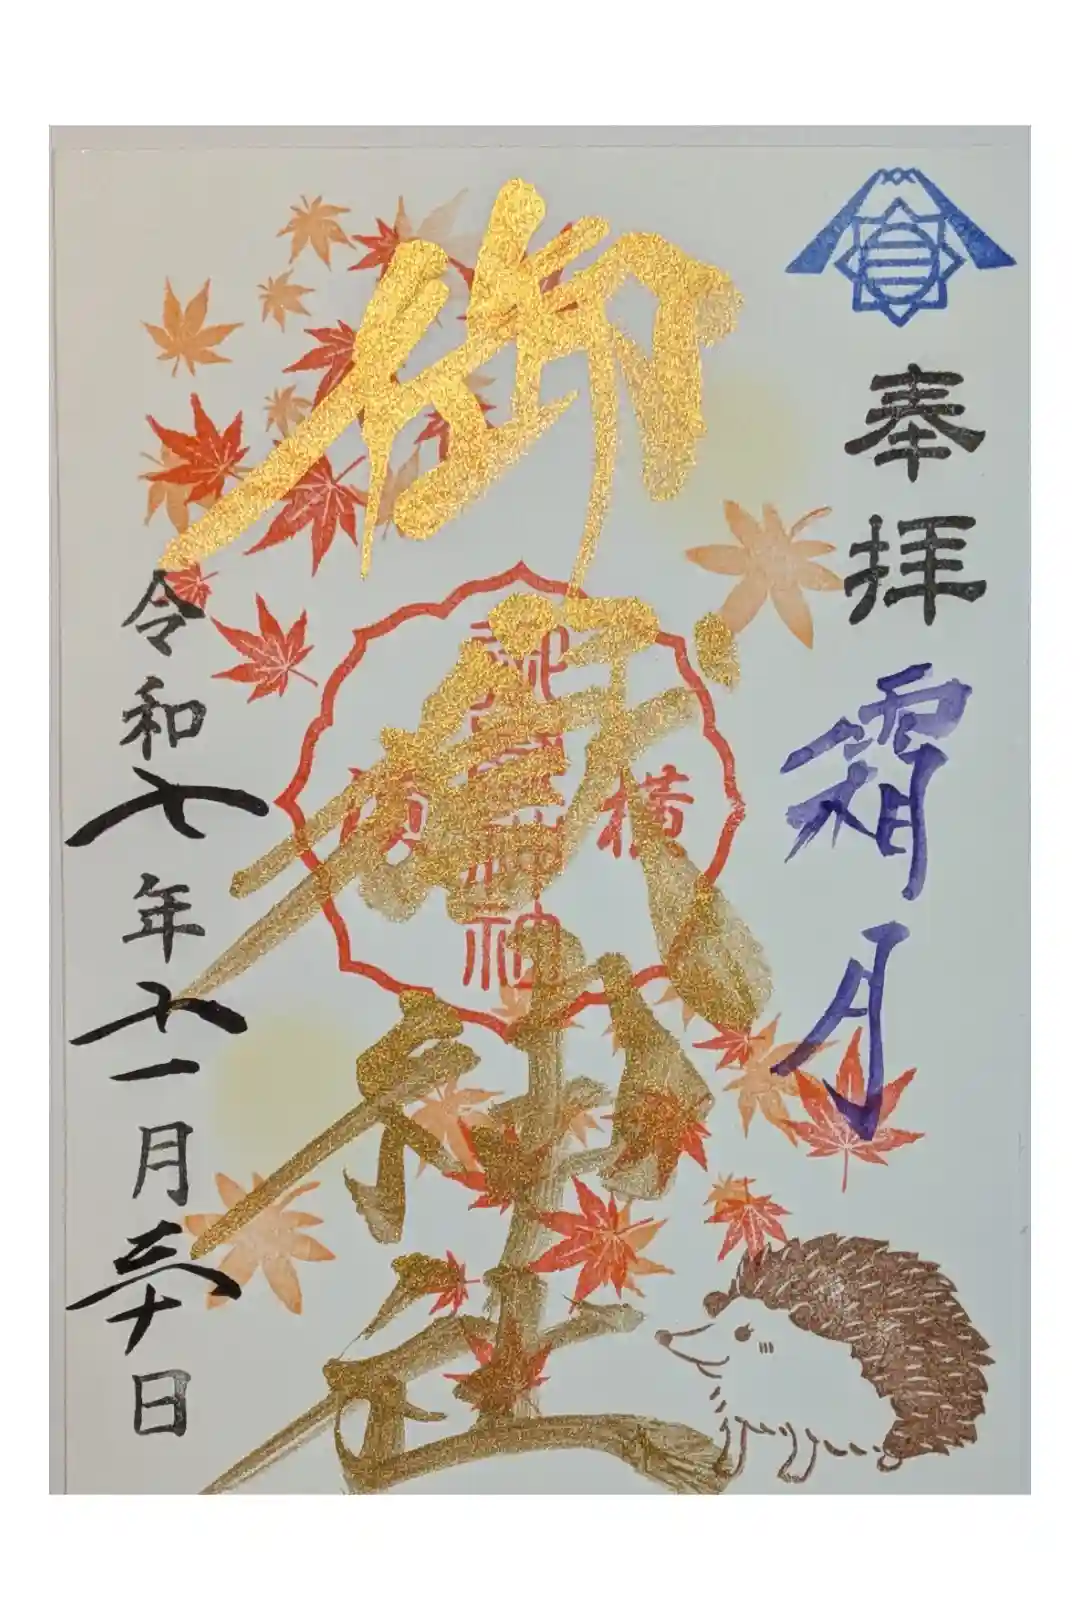 奉拝
霜月
御嶽神社
横
須
御嶽神社
令和七年十一月三十日